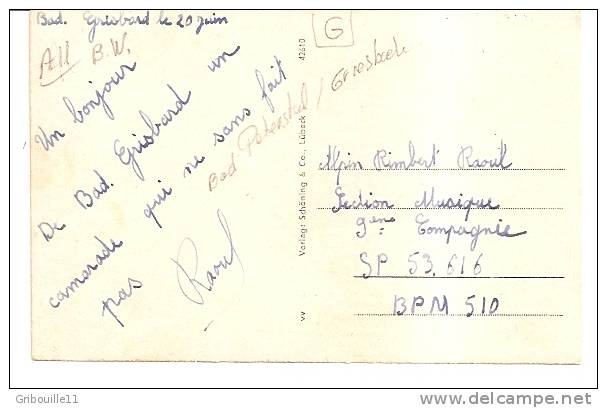 Bad. Grisbard le 20 juin
All B.W.
Un bonjour
De Bad. Grisbard un
camarade qui ne sans fait
pas Raoul
Bad Peterstal / Griesbach
G
42610
Verlag: Schöning & Co., Lübeck
VV
Alpin Rimbert Raoul
Section Musique
9eme Compagnie
SP 53.616
BPM 510
Gribouille11
delcampe.net